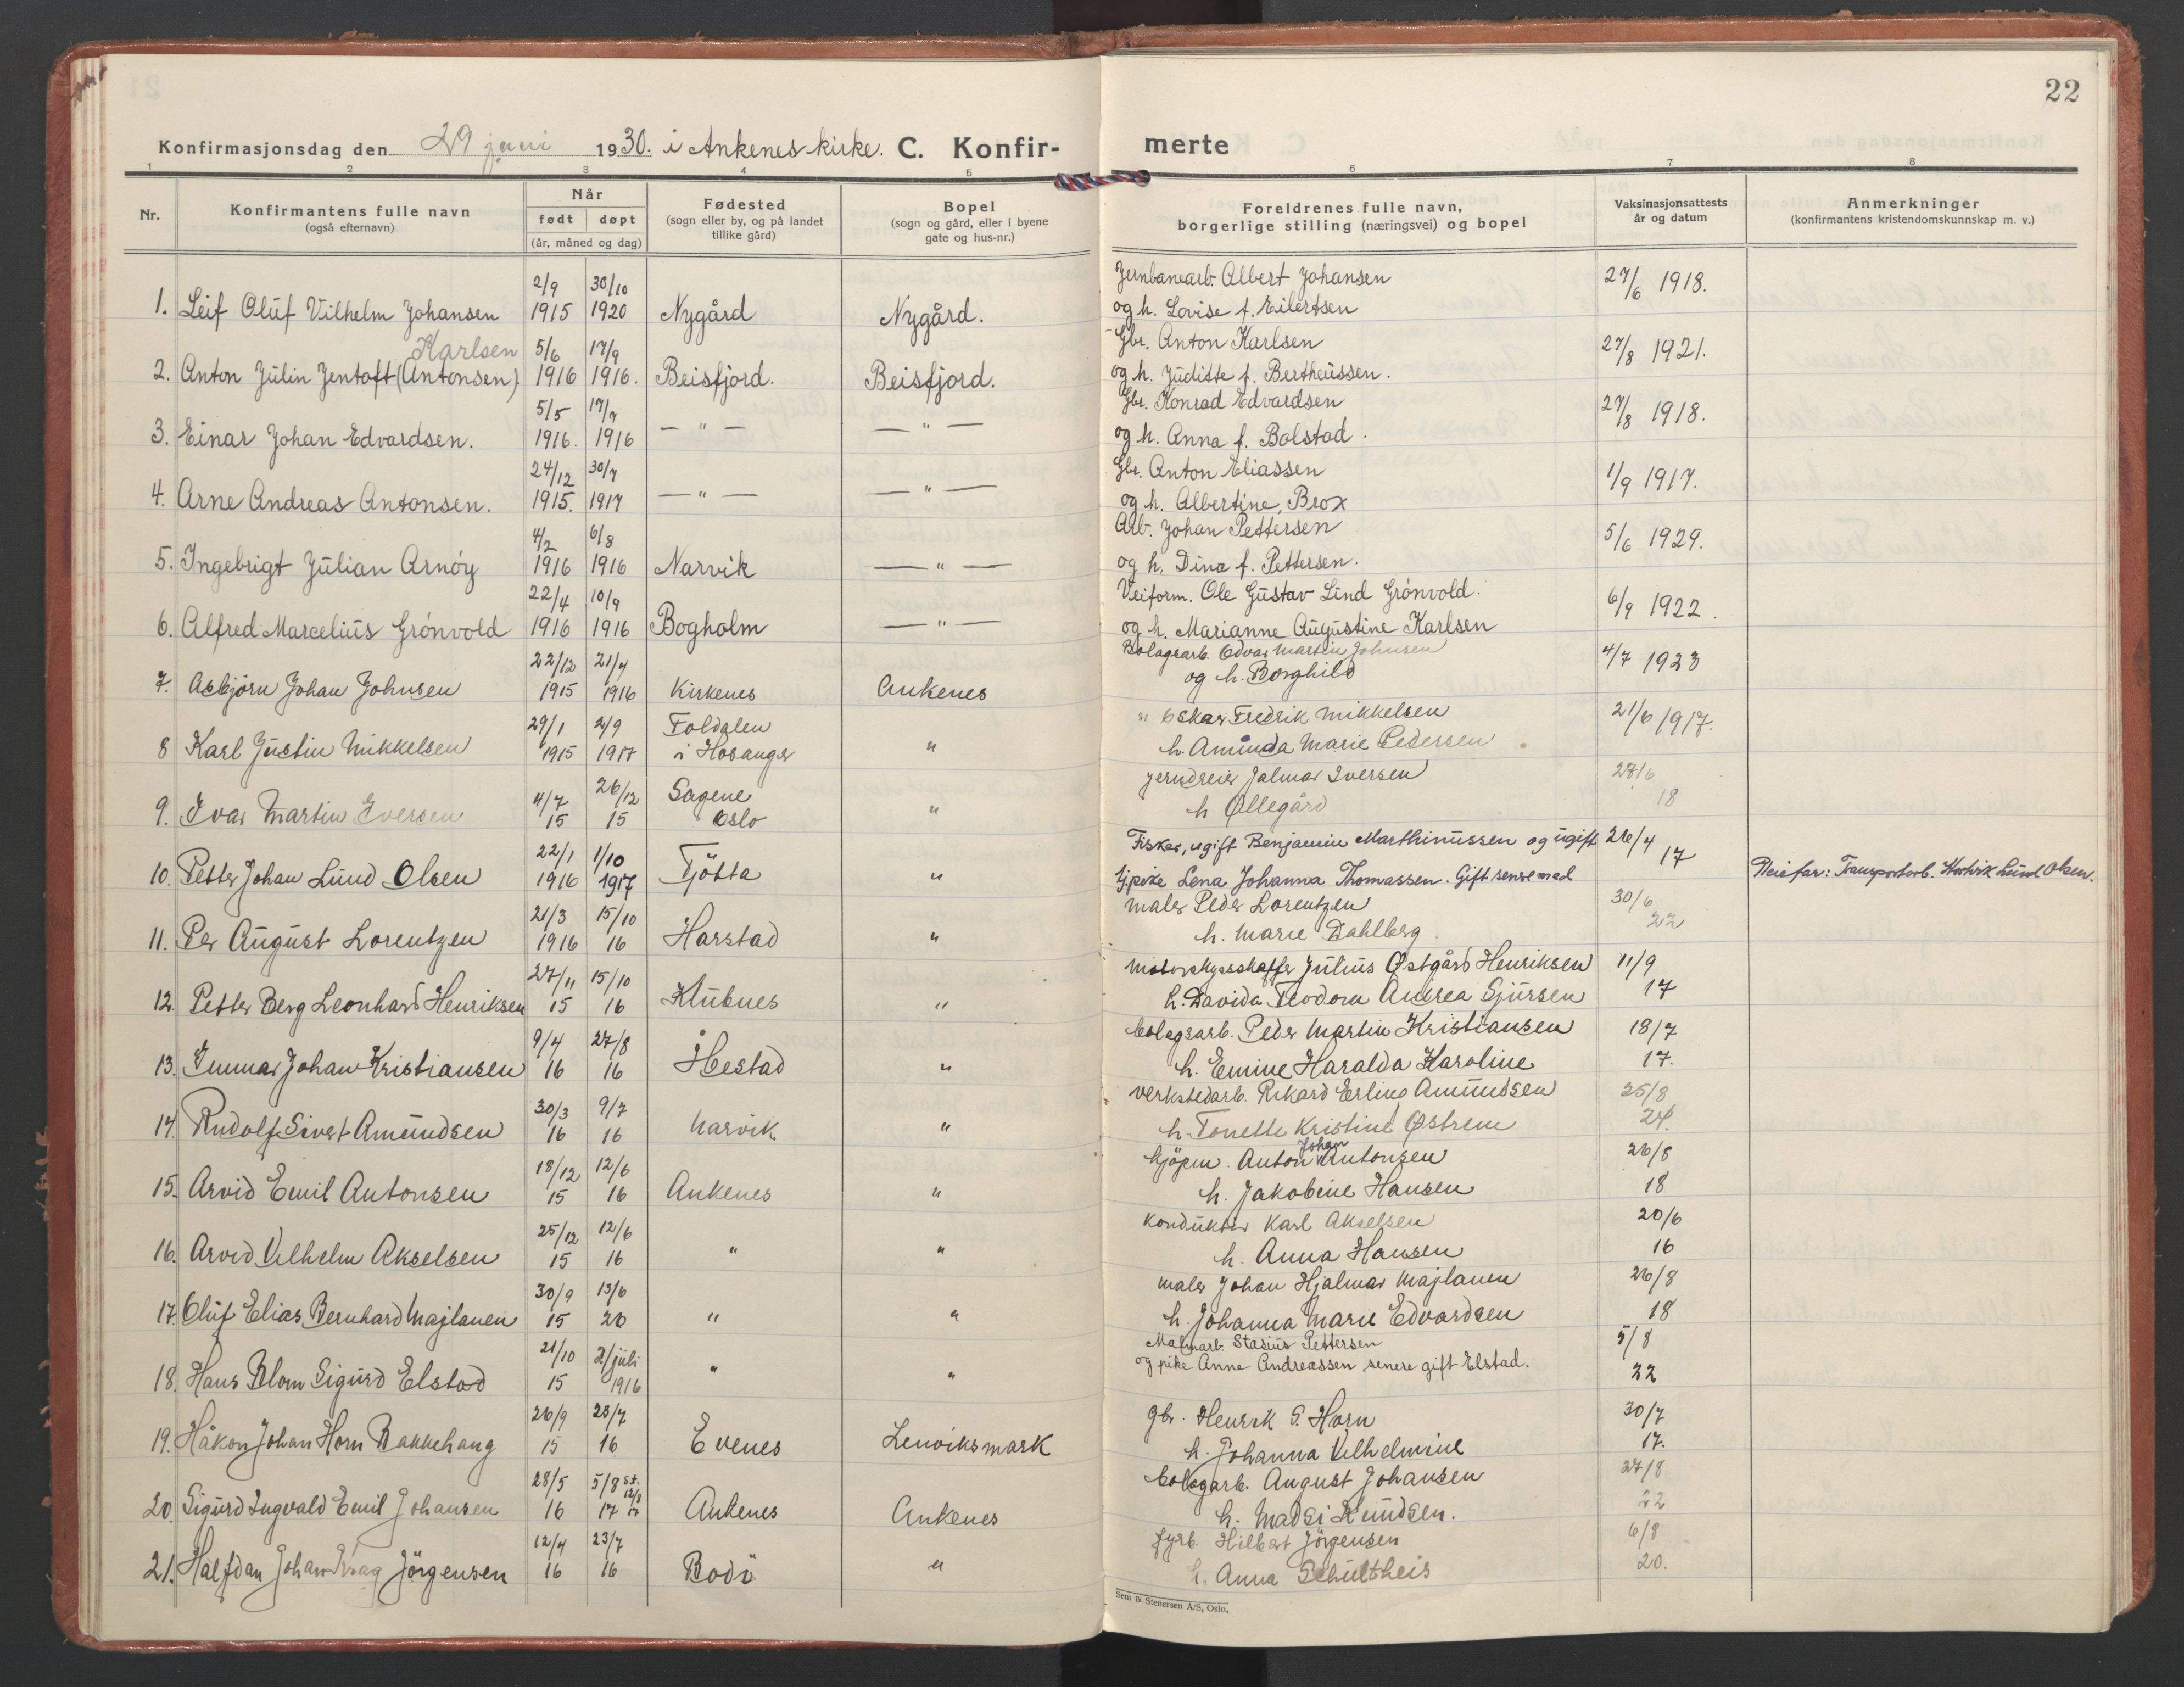 22
Konfirmasjonsdag den 29 juni 1930. i Ankenes kirke. C. Konfir- merte
1 2 3 4 5 6 7 8
Nr. Konfirmantens fulle navn (også efternavn) Når født døpt (år, måned og dag) Fødested (sogn eller by, og på landet tillike gård) Bopel (sogn og gård, eller i byene gate og hus-nr.) Foreldrenes fulle navn, borgerlige stilling (næringsvei) og bopel Vaksinasjonsattests år og datum Anmerkninger (konfirmantens kristendomskunnskap m. v.)
2/9 30/10 Jernbanearb. Albert Johansen 27/6 1918.
1. Leif Oluf Vilhelm Johansen 1915 1920 Nygård Nygård. og h. Lovise f. Eilertsen
Karlsen 5/6 17/9 Gbr. Anton Karlsen 27/8 1921.
2. Anton Julin Jentoft (Antonsen) 1916 1916. Beisfjord. Beisfjord. og h. Juditte f. Bertheussen.
5/5 17/7 Gbr. Konrad Edvardsen 27/8 1918.
3. Einar Johan Edvardsen. 1916. 1916 — " — — " — og h. Anna f. Bolstad.
24/12 30/7 Gbr. Anton Eliassen 1/9 1917.
4. Arne Andreas Antonsen. 1915. 1917 — " — — " — og h. Albertine, Brox
4/2 6/8 Arb. Johan Pettersen 5/6 1929.
5. Ingebrigt Julian Arnöy 1916 1916 Narvik — " — og h. Dina f. Pettersen.
22/4 10/9 Veiform. Ole Gustav Lind Grönvold. 6/9 1922.
6. Alfred Marcelius Grönvold 1916 1916 Bogholm — " — og h. Marianne Augustine Karlsen
22/12 21/4 Bolagsarb. Edvar Martin Johnsen 4/7 1923
7. Asbjörn Johan Johnsen 1915 1916 Kirkenes Ankenes og h. Borghild
29/1 2/9 Foldalen " Oskar Fredrik Mikkelsen 21/6 1917.
8 Karl Justin Mikkelsen 1915 1917 i Hosanger " h. Aminda Marie Pedersen
4/7 26/12 Sagene jerndreier Jalmar Iversen 28/6
9. Ivar Martin Iversen 15 15 Oslo " h Ollegård 18
22/1 1/10 Fisker, ugift Benjamin Marthinussen og ugift 26/4 17
10. Petter Johan Lund Olsen 1916 1917 Tjötta " tjpike Lena Johanna Thomassen. Gift senere med Pleiefar: Transportarb. Hartvik Lund Olsen.
21/3 15/10 maler Peder Lorentzen 30/6
11. Per August Lorentzen 1916 16 Harstad " h. Marie Dahlberg. 22
27/11 15/10 Motorskyssskaffer Julius Østgård Henriksen 11/9
12. Petter Berg Leonhard Henriksen 15 16 Klubnes " h. Davida Teodora Andrea Sjursen 17
9/4 27/8 bolagsarb. Peder Martin Kristiansen 18/7
13. Ingmar Johan Kristiansen 16 16 Ibestad " h. Emine Haralda Karoline 17.
30/3 9/7 verkstedarb. Rikard Erling Amundsen 25/8
14. Rudolf Sivert Amundsen 16 16 Narvik " h. Tonette Kristine Østrem 24.
18/12 12/6 kjöpm. Anton Johan Antonsen 26/8
15. Arvid Emil Antonsen 15 16 Ankenes " h. Jakobine Hansen 18
25/12 12/6 konduktör Karl Akselsen 20/6
16. Arvid Vilhelm Akselsen 15 16 " " h. Anna Hansen 16
30/9 13/6 maler Johan Hjalmar Majlanen 26/8
17. Oluf Elias Bernhard Majlanen 15 20 " " h. Johanna Marie Edvardsen 18
21/10 2/juli Malmarb. Stasius Pettersen 5/8
18. Hans Blom Sigurd Elstad 15 1916 " " og pike Anna Andreassen senere gift Elstad. 22
26/9 23/7 gbr. Henrik S. Horn 30/7
19. Håkon Johan Horn Bakkehaug 15 16 Evenes Lenviksmark h. Johanna Vilhelmine 17.
28/5 5/8 s.t. 12/8 bolagarb. August Johansen 27/8
20. Sigurd Ingvald Emil Johansen 16 17 17 Ankenes Ankenes h. Madsi Knudsen. 22
12/4 23/7 fyrb. Hilbert Jörgensen 6/8
21. Halfdan Johan Jörgensen 16 16 Bodö " h. Anna Schultheis 20.
Sem & Stenersen A/S, Oslo.